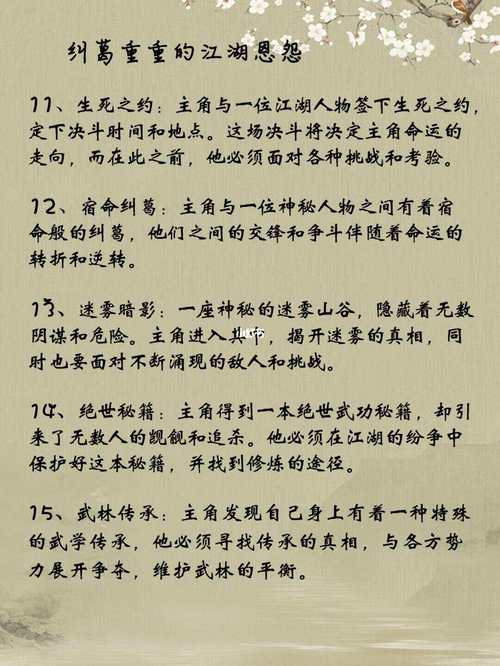 纠葛重重的江湖恩怨
11、生死之约：主角与一位江湖人物签下生死之约，
定下决斗时间和地点。这场决斗将决定主角命运的
走向，而在此之前，他必须面对各种挑战和考验。
12、宿命纠葛：主角与一位神秘人物之间有着宿
命般的纠葛，他们之间的交锋和争斗伴随着命运的
转折和逆转。
13、迷雾暗影：一座神秘的迷雾山谷，隐藏着无数
阴谋和危险。主角进入其中，揭开迷雾的真相，同
时也要面对不断涌现的敌人和挑战。
14、绝世秘籍：主角得到一本绝世武功秘籍，却引
来了无数人的觊觎和追杀。他必须在江湖的纷争中
保护好这本秘籍，并找到修炼的途径。
15、武林传承：主角发现自己身上有着一种特殊
的武学传承，他必须寻找传承的真相，与各方势
力展开争夺，维护武林的平衡。